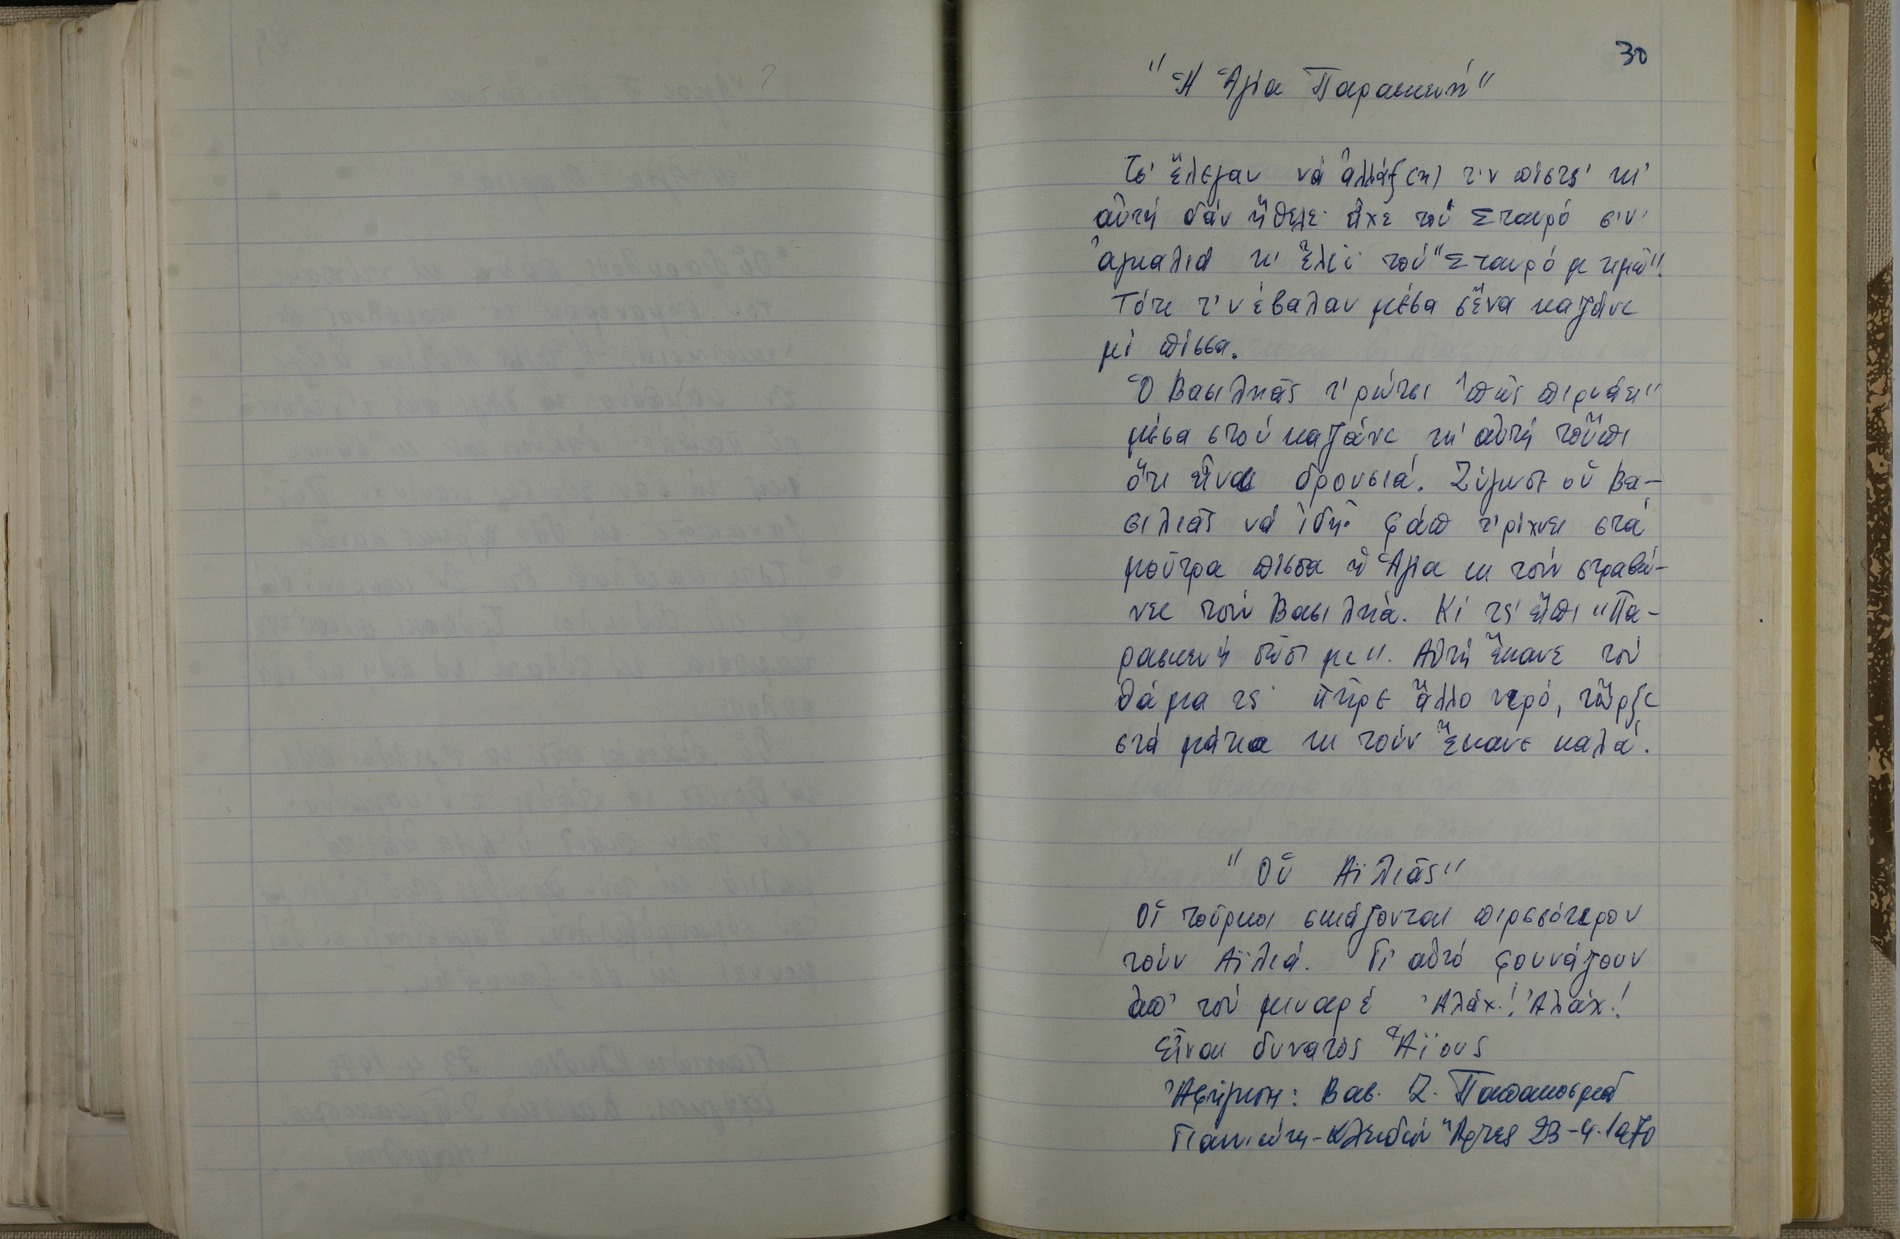 30
"Ἡ Ἁγία Παρασκευή"
Τσ' ἔλεγαν νά ἀλλάξ(η) τ'ν πίστ'ς κι'
αὐτή δέν ἤθελε· εἶχε τού Σταυρό σ'ν'
ἀγκαλιά κι ἔλεε· τού "Σταυρό μ τιμῶ".
Τότε τ'ν ἔβαλαν μέσα σἕνα καζάνι
μί πίσσα.
Ὁ Βασιλιᾶς τ' ρώτσι "πῶς πιρνάει"
μέσα στού καζάνι κι' αὐτή τοὖπι
ὅτι εἶναι δρουσιά. Ζύγωσε οὑ Βα-
σιλιᾶς νά ἰδῆ· φάπ τ' ρίχνει στά
μοῦτρα πίσσα ἡ Ἁγία κι τούν στραβώ-
νει τούν Βασιλιά. Κί τσ' εἶπι "Πα-
ρασκευή σῶσι με". Αὐτή ἔκανε τού
θάμα τς· πῆρε ἄλλο νερό, τὦρξε
στά μάτια κι τούν ἔκανε καλά.
"Οὑ Αϊλιᾶς"
Οἱ τοῦρκοι σκιάζονται πιρσσότερον
τούν Αϊλιά. Γι αὐτό φουνάζουν
ἀπ' τού μιναρέ Ἀλάχ! Ἀλάχ!
Εἶναι δυνατός Ἅϊους
Ἀφήγηση: Βασ. Ζ. Παπακοσμᾶ
Γιαννιώτη-Κλειδίον Ἄρτης 23-4-1970